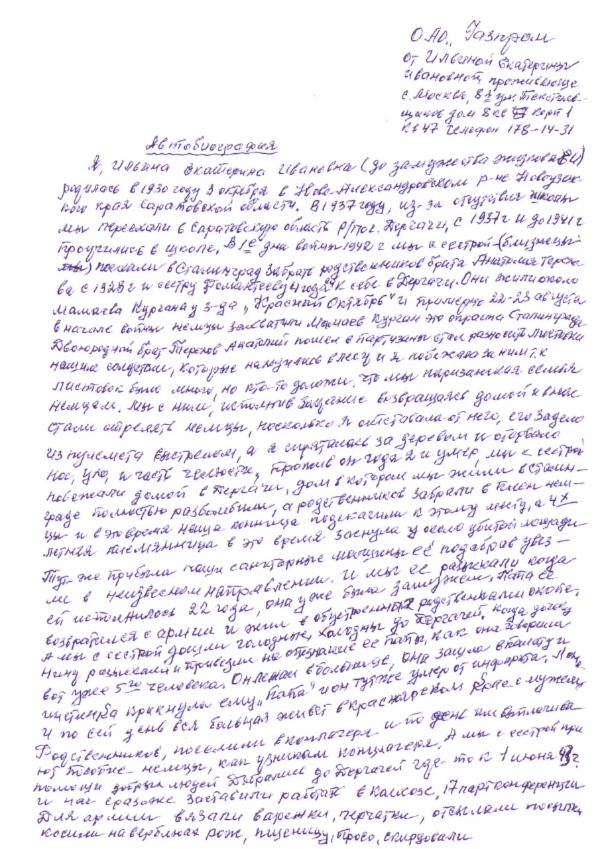 ОАО „Газпром
от Ильиной Екатерины
Ивановной, проживающе
г. Москва, 8я ул. Текстиль-
щиков дом 8 кор 1
кв 47 телефон 178-14-31
Автобиография
Я, Ильина Екатерина Ивановна (до замужества
родилась в 1930 году 3 октября в Ново-Александровском р-не Новоузен-
кого края Саратовской области. В 1937 году, из-за отсутствия школы
мы переехали в Саратовскую область Р/пос. Дергачи, с 1937 г и до 1941 г
проучились в школе. В 1е дни войны 1942 г мы с сестрой (близнецы
) поехали в Сталинград забрать родственников брата Анатолия Терехо-
ва с 1928 г и сестру 4 года к себе в Дергачи. Они жили около
Мамаева Кургана у з-да „Красный Октябрь" и примерно 22-23 августа
в начале войны немцы захватили Мамаев Курган это окраина Сталинграда
Двоюродный брат Терехов Анатолий пошел в партизаны стал разносить листовки
нашим солдатам, которые находились в лесу и я побежала за ним т.к
листовок было много, но кто-то доложил, что мы партизанская семья
немцам. Мы с ним, исполнив задание возвращаясь домой к в нас
стали стрелять немцы, поскольку я отставала от него, его задело
из пулемета выстрелом, а я спряталась за деревом и оторвало
нос, ухо, и часть челюсти, прожив он года 2 и умер, мы с сестрой
побежали домой в Дергачи, дом в котором мы жили в Сталин-
граде полностью разбомбили, а родственников забрали в плен нем-
цы и в это время наша конница подскакали к этому месту, а 4х
летняя племянница в это время заснула у около убитой лошади
Тут же прибыли наши санитарные машины её подобрав увез-
ли в неизвесном направлении. И мы её разыскали когда
ей исполнилось 22 года, она уже была замужем. Папа её
возвратился с армии и жил в родственники окопе.
А мы с сестрой дошли голодные, холодны до Дергачей. Когда дочку
Нину разыскали и привезли на опознание её папы, как она говорила
вот уже 5го человека. Он лежал в больнице, она зашла в палату и
крикнула ему „Папа" и он тут же умер от инфаркта.
И по сей день вся больная живет в Красноярском крае с мужем,
Родственников, поселили в концлагеря и по день им выплачива-
ют пособие немцы, как узникам концлагеря. А мы с сестрой при
помощи добрых людей добрались до Дергачей где-то к 1 июня 43 г.
и нас сразу же заставили работать в Колхозе, 17 партконференции
Для армии вязали варежки, перчатки, отсылали посылки,
косили на верблюдах рож, пшеницу, просо, скирдовали